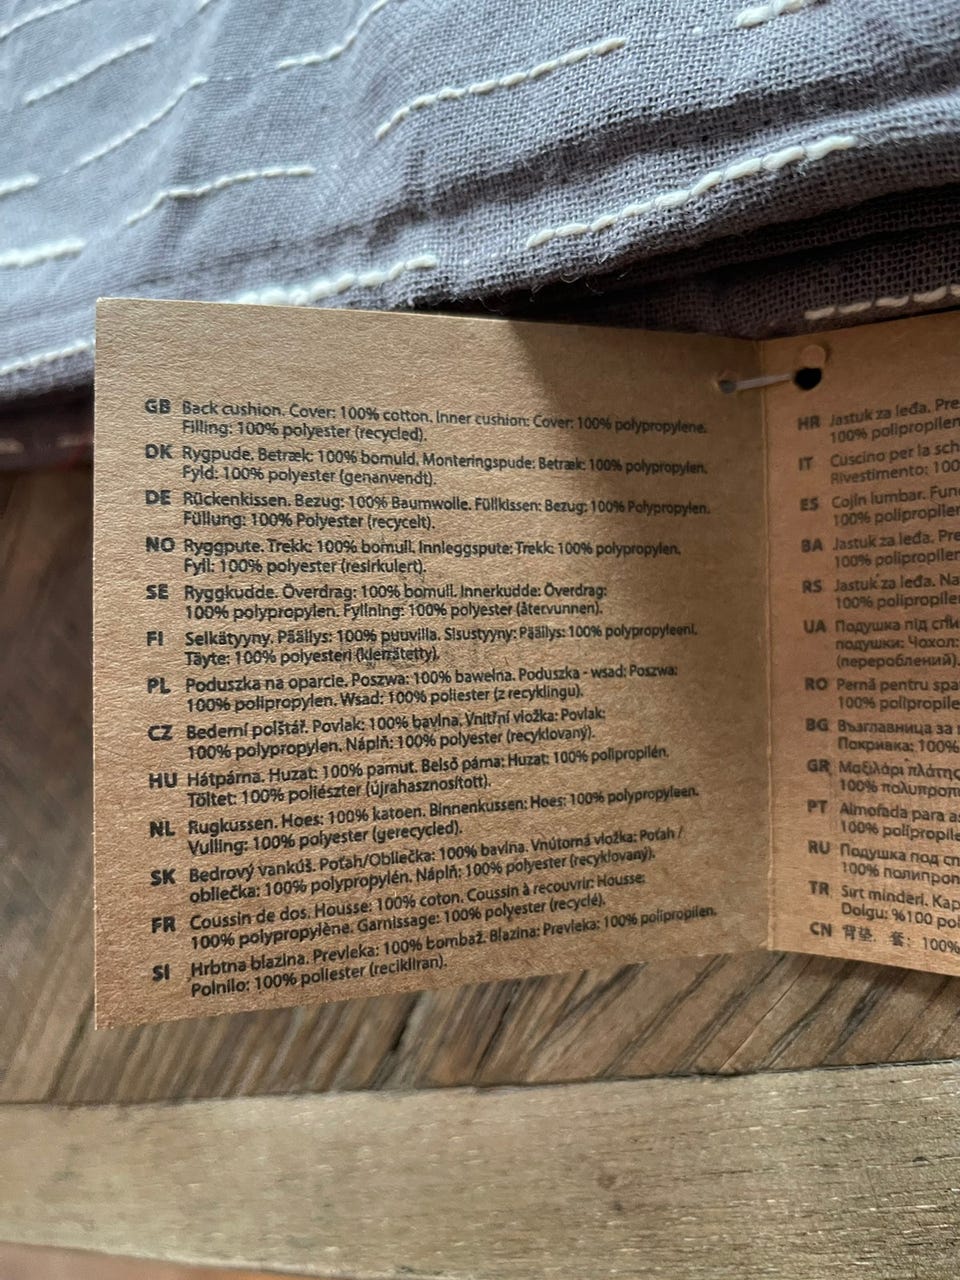 GB Back cushion. Cover: 100% cotton. Inner cushion: Cover: 100% polypropylene.
Filling: 100% polyester (recycled).
DK Rygpude. Betræk: 100% bomuld. Monteringspude: Betræk: 100% polypropylen.
Fyld: 100% polyester (genanvendt).
DE Rückenkissen. Bezug: 100% Baumwolle. Füllkissen: Bezug: 100% Polypropylen.
Füllung: 100% Polyester (recycelt).
NO Ryggpute. Trekk: 100% bomull. Innleggspute: Trekk: 100% polypropylen.
Fyll: 100% polyester (resirkulert).
SE Ryggkudde. Överdrag: 100% bomull. Innerkudde: Överdrag:
100% polypropylen. Fyllning: 100% polyester (återvunnen).
FI Selkätyyny. Päällys: 100% puuvilla. Sisustyyny: Päällys: 100% polypropyleeni.
Täyte: 100% polyesteri (kierrätetty).
PL Poduszka na oparcie. Poszwa: 100% bawełna. Poduszka - wsad: Poszwa:
100% polipropylen. Wsad: 100% poliester (z recyklingu).
CZ Bederní polštář. Povlak: 100% bavlna. Vnitřní vložka: Povlak:
100% polypropylen. Náplň: 100% polyester (recyklovaný).
HU Hátpárna. Huzat: 100% pamut. Belső párna: Huzat: 100% polipropilén.
Töltet: 100% poliészter (újrahasznosított).
NL Rugkussen. Hoes: 100% katoen. Binnenkussen: Hoes: 100% polypropyleen.
Vulling: 100% polyester (gerecycled).
SK Bedrový vankúš. Poťah/Obliečka: 100% bavlna. Vnútorná vložka: Poťah /
obliečka: 100% polypropylén. Náplň: 100% polyester (recyklovaný).
FR Coussin de dos. Housse: 100% coton. Coussin à recouvrir: Housse:
100% polypropylène. Garnissage: 100% polyester (recyclé).
SI Hrbtna blazina. Prevleka: 100% bombaž. Blazina: Prevleka: 100% polipropilen.
Polnilo: 100% poliester (recikliran).
HR Jastuk za leđa. Pre
100% polipropilen
IT Cuscino per la sch
Rivestimento: 100
ES Cojín lumbar. Fun
100% polipropiler
BA Jastuk za leđa. Pre
100% polipropilen
RS Jastuk za leđa. Na
100% polipropilen
UA Подушка під спи
подушки: Чохол:
(перероблений).
RO Pernă pentru spa
100% polipropile
BG Възглавница за
Покривка: 100%
GR Μαξιλάρι πλάτης
100% πολυπροπ
PT Almofada para as
100% polipropile
RU Подушка под сп
100% полипроп
TR Sırt minderi. Kap
Dolgu: %100 pol
CN 背垫. 套: 100%